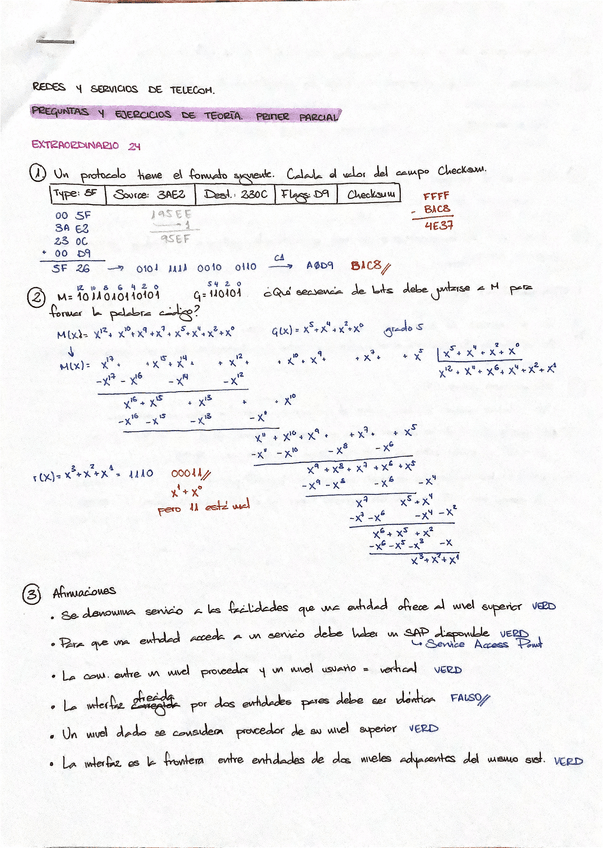 REDES Y SERVICIOS DE TELECOM.
PREGUNTAS Y EJERCICIOS DE TEORÍA PRIMER PARCIAL
EXTRAORDINARIO 24
① Un protocolo tiene el formato siguiente. Calcula el valor del campo Checksum.
Type: 5F Source: 3AE2 Dest.: 230C Flags: D9 Checksum
FFFF
- B1C8
4E37
00 5F
3A E2
23 0C
+ 00 D9
5F 26 → 0101 1111 0010 0110 C1→ A0D9 B1C8//
195EE
1
95EF
12 10 8 6 4 2 0
5 4 2 0
② M= 1011010110101 G= 110101 ¿Qué secuencia de bits debe juntarse a M para
formar la palabra código?
M(x)= x¹²+ x¹⁰+x⁹+x⁷+x⁵+x⁴+x²+x⁰ G(x)= x⁵+x⁴+x²+x⁰ grado 5
M(x)= x¹⁷ + x¹⁵ + x¹⁴ + x¹² + x¹⁰ + x⁹ + x⁷ + x⁵ x⁵+x⁴+x²+x⁰
-x¹⁷ -x¹⁶ -x¹⁴ -x¹²
x¹⁶ + x¹⁵ + x¹³ + + x¹⁰
-x¹⁶ -x¹⁵ -x¹³
+ x⁷ + x⁵
-x⁸ -x⁶
x⁹ + x⁸ + x⁷ + x⁶ + x⁵
-x⁹ -x⁸ -x⁶ -x⁴
x⁷ x⁵+x⁴
-x⁷ -x⁶ -x⁴ -x²
x⁶ + x⁵ + x²
-x⁶ -x⁵ -x³ -x
x³+x²+x¹
r(x)= x³+x²+x¹ = 1110 00011//
x¹+x⁰
pero 11 está mal
③ Afirmaciones
• Se denomina servicio a las facilidades que una entidad ofrece al nivel superior VERD
• Para que una entidad acceda a un servicio debe haber un SAP disponible VERD
↳ Service Access Point
• La com. entre un nivel proveedor y un nivel usuario = vertical VERD
• La interfaz ofrecida por dos entidades pares debe ser idéntica FALSO//
• Un nivel dado se considera proveedor de su nivel superior VERD
• La interfaz es la frontera entre entidades de dos niveles adyacentes del mismo sist. VERD